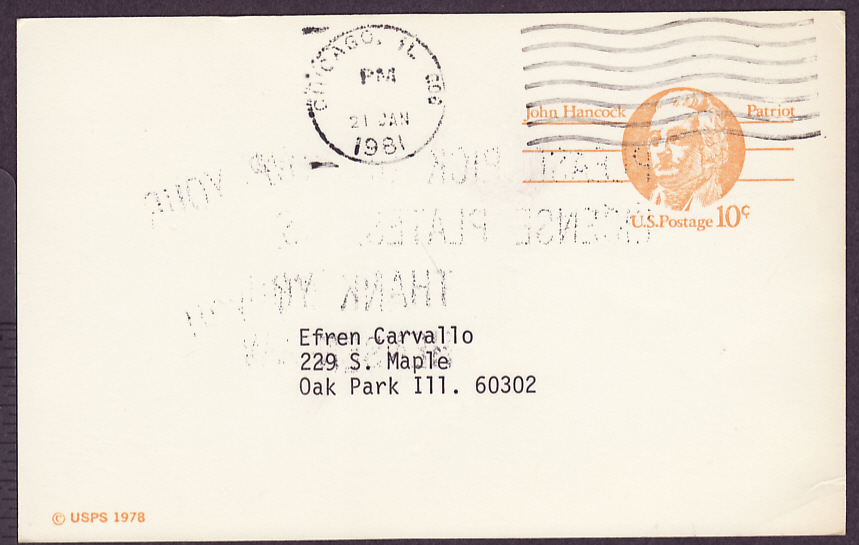 CHICAGO, IL 606
PM
21 JAN
1981
John Hancock Patriot
U.S. Postage 10¢
PLEASE PICK UP YOUR
LICENSE PLATES
THANK YOU
Efren Carvallo
229 S. Maple
Oak Park Ill. 60302
© USPS 1978